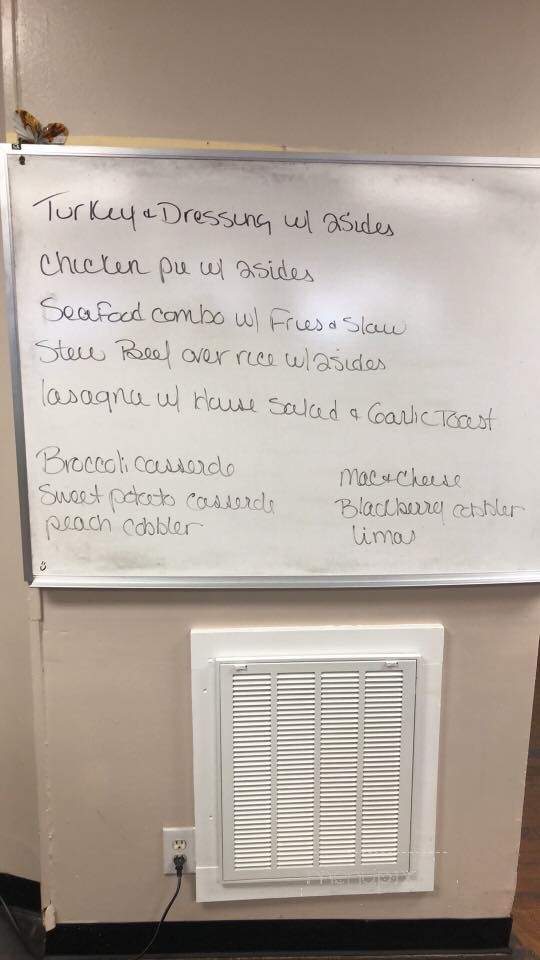 Turkey & Dressing w/ 2sides
Chicken pie w/ 2sides
Seafood combo w/ Fries & Slaw
Stew Beef over rice w/ 2sides
lasagna w/ House Salad & Garlic Toast
Broccoli casserole
Sweet potato casserole
peach cobbler
Mac & Cheese
Blackberry cobbler
limas
menupix